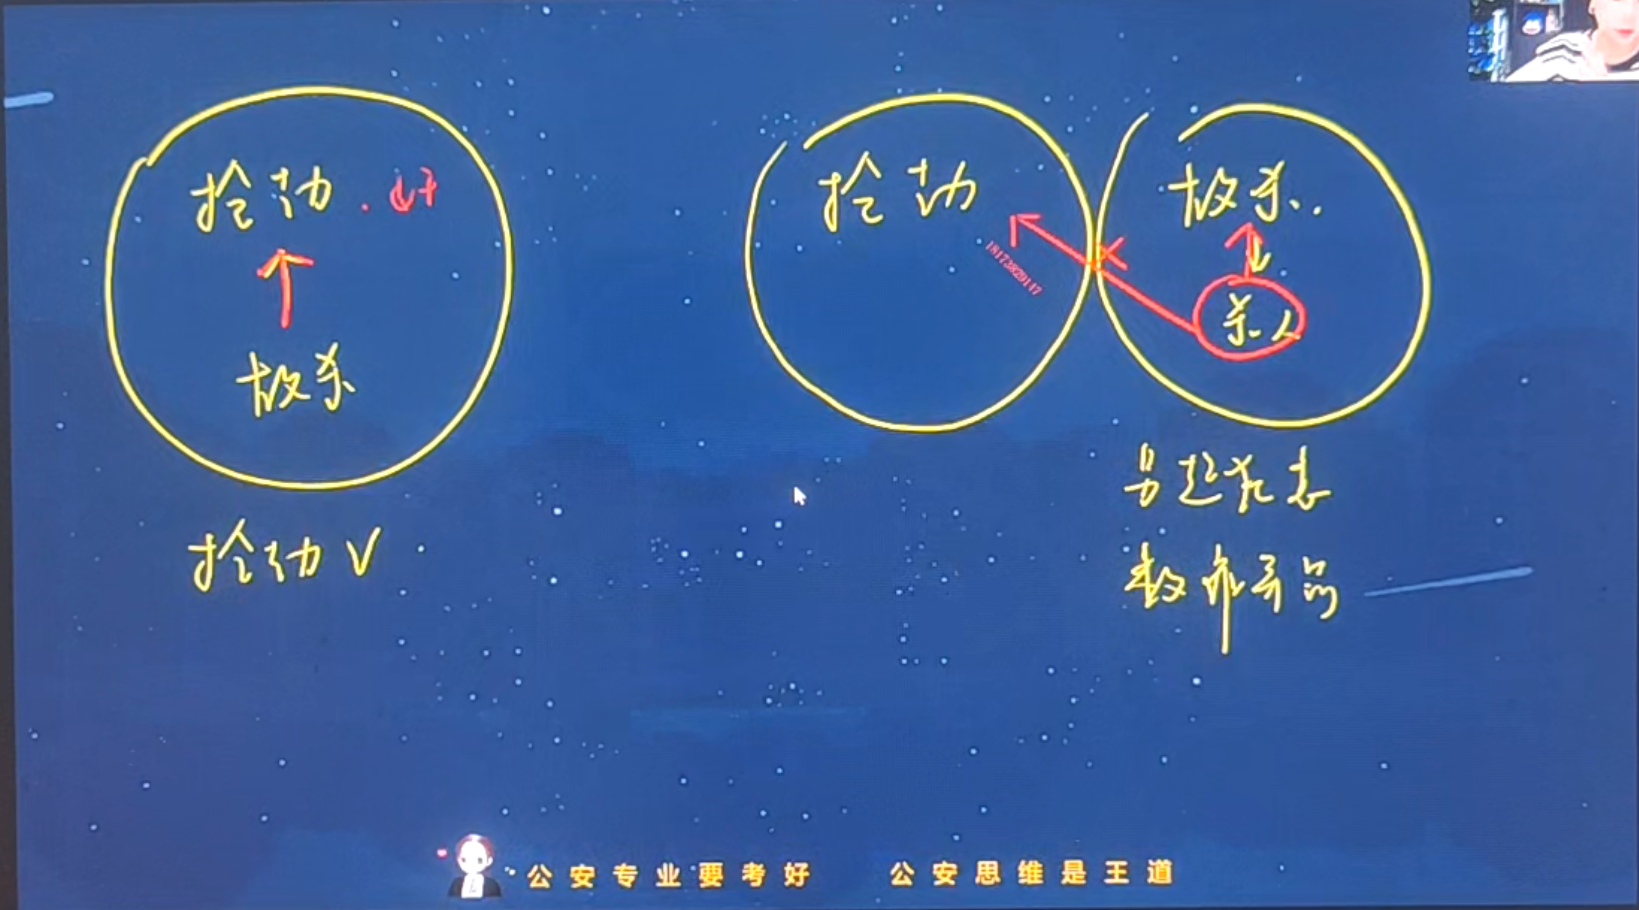 抢劫.
故杀
抢劫 √
抢劫
18173829147
故杀.
杀人
另起犯意
数罪并罚
公安专业要考好 公安思维是王道